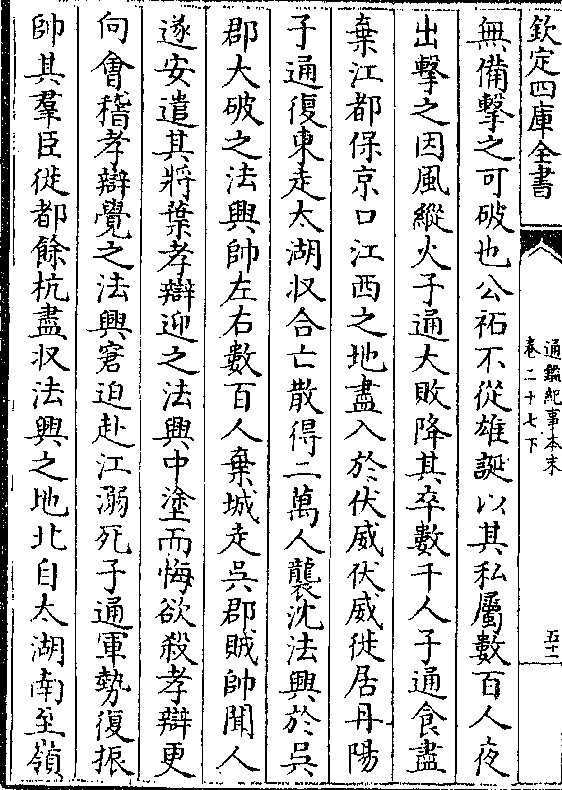 欽定四庫全書
通鑑紀事本末
卷二十七下
五十一
無備擊之可破也公祏不從雄誕以其私屬數百人夜
出擊之因風縱火子通大敗降其卒數千人子通食盡
棄江都保京口江西之地盡入於伏威伏威徙居丹陽
子通復東走太湖收合亡散得二萬人襲沈法興於吳
郡大破之法興帥左右數百人棄城走吳郡賊帥聞人
遂安遣其將葉孝辯迎之法興中塗而悔欲殺孝辯更
向會稽孝辯覺之法興窘迫赴江溺死子通軍勢復振
帥其羣臣徙都餘杭盡收法興之地北自太湖南至嶺